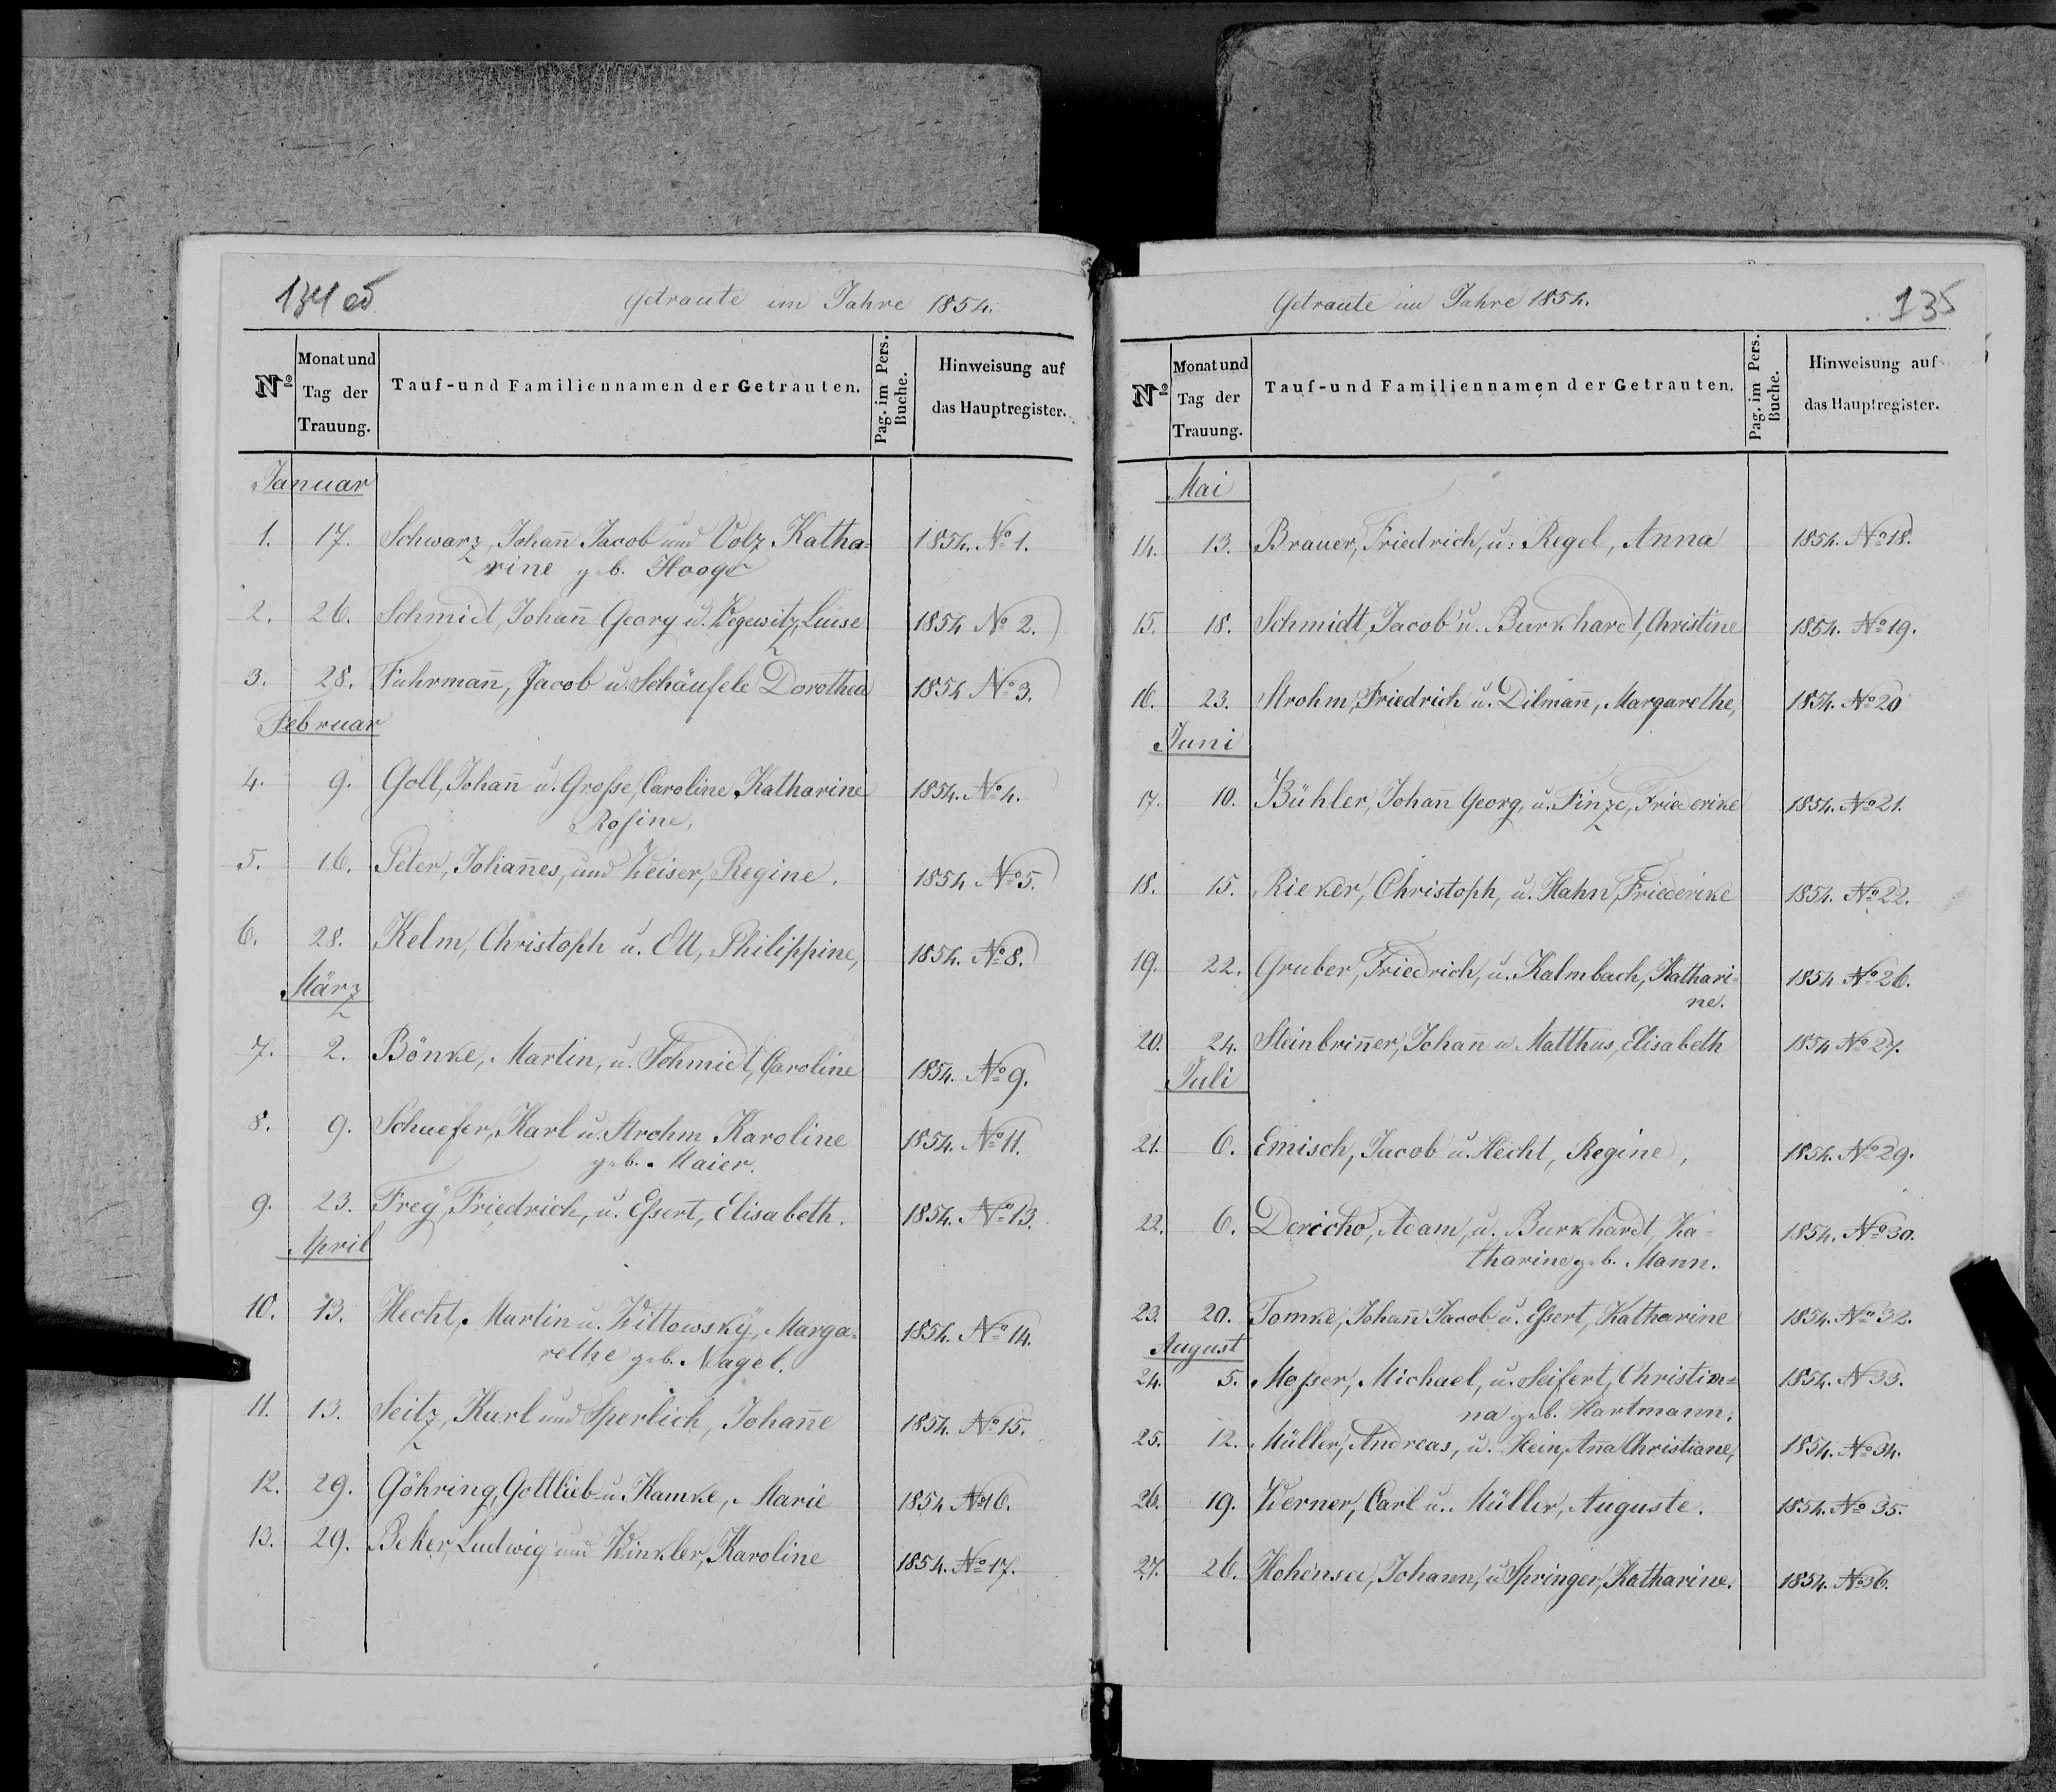 134 об
Getraute im Jahre 1854.
No
Monat und Tag der Trauung.
Tauf- und Familiennamen der Getrauten.
Pag. im Pers. Buche.
Hinweisung auf das Hauptregister.
Januar
1. 17. Schwarz, Johan̄ Jacob und Volz Katha= 1854. No 1.
rine geb. Hooge
2. 26. Schmidt, Johan̄ Georg u. Wegewitz, Luise 1854 No 2.
3. 28. Fuhrman̄, Jacob u. Schäufele Dorothea 1854 No 3.
Februar
4. 9. Goll, Johan̄ u. Große, Caroline Katharine 1854. No 4.
Rosine,
5. 16. Peter, Johan̄es, und Weiser, Regine. 1854 No 5.
6. 28. Kelm, Christoph u. Ott, Philippine, 1854. No 8.
März
7. 2. Bönke, Martin, u. Schmidt, Caroline 1854. No 9.
8. 9. Schaefer, Karl u. Strohm Karoline 1854. No 11.
geb. Maier.
9. 23. Freÿ, Friedrich, u. Eßert, Elisabeth. 1854. No 13.
April
10. 13. Hecht, Martin u. Wittowskÿ, Marga= 1854. No 14.
rethe geb. Nagel.
11. 13. Seitz, Karl und Sperlich, Johan̄e 1854. No 15.
12. 29. Göhring, Gottlieb u. Kamke, Marie 1854 No 16.
13. 29. Beker, Ludwig und Winkler, Karoline 1854. No 17.
Getraute im Jahre 1854.
135
No
Monat und Tag der Trauung.
Tauf- und Familiennamen der Getrauten.
Pag. im Pers. Buche.
Hinweisung auf das Hauptregister.
Mai
14. 13. Brauer, Friedrich, u. Regel, Anna 1854. No 18.
15. 18. Schmidt, Jacob u. Burkhardt, Christine 1854. No 19.
16. 23. Strohm, Friedrich u. Dilman̄, Margarethe, 1854. No 20
Juni
17. 10. Bühler, Johan̄ Georg, u. Finze, Friederike 1854. No 21.
18. 15. Rieker, Christoph, u. Hahn, Friederike 1854. No 22.
19. 22. Gruber, Friedrich, u. Kalmbach, Kathari= 1854 No 26.
ne.
20. 24. Steinbrin̄er, Johan̄ u Matthus, Elisabeth 1854 No 27.
Juli
21. 6. Emisch, Jacob u. Hecht, Regine, 1854. No 29.
22. 6. Dericho, Adam, u. Burkhardt, Ka= 1854. No 30.
tharine geb. Mann.
23. 20. Tomke, Johan̄ Jacob u. Eßert, Katharine 1854. No 32.
August
24. 5. Moßer, Michael, u. Seifert, Christia= 1854. N 33.
na geb. Hartmann.
25. 12. Müller, Andreas, u. Hein, An̄a Christiane, 1854. No 34.
26. 19. Werner, Carl u. Müller, Auguste. 1854. No 35.
27. 26. Hohensee, Johann, u. Springer, Katharine. 1854. No 36.